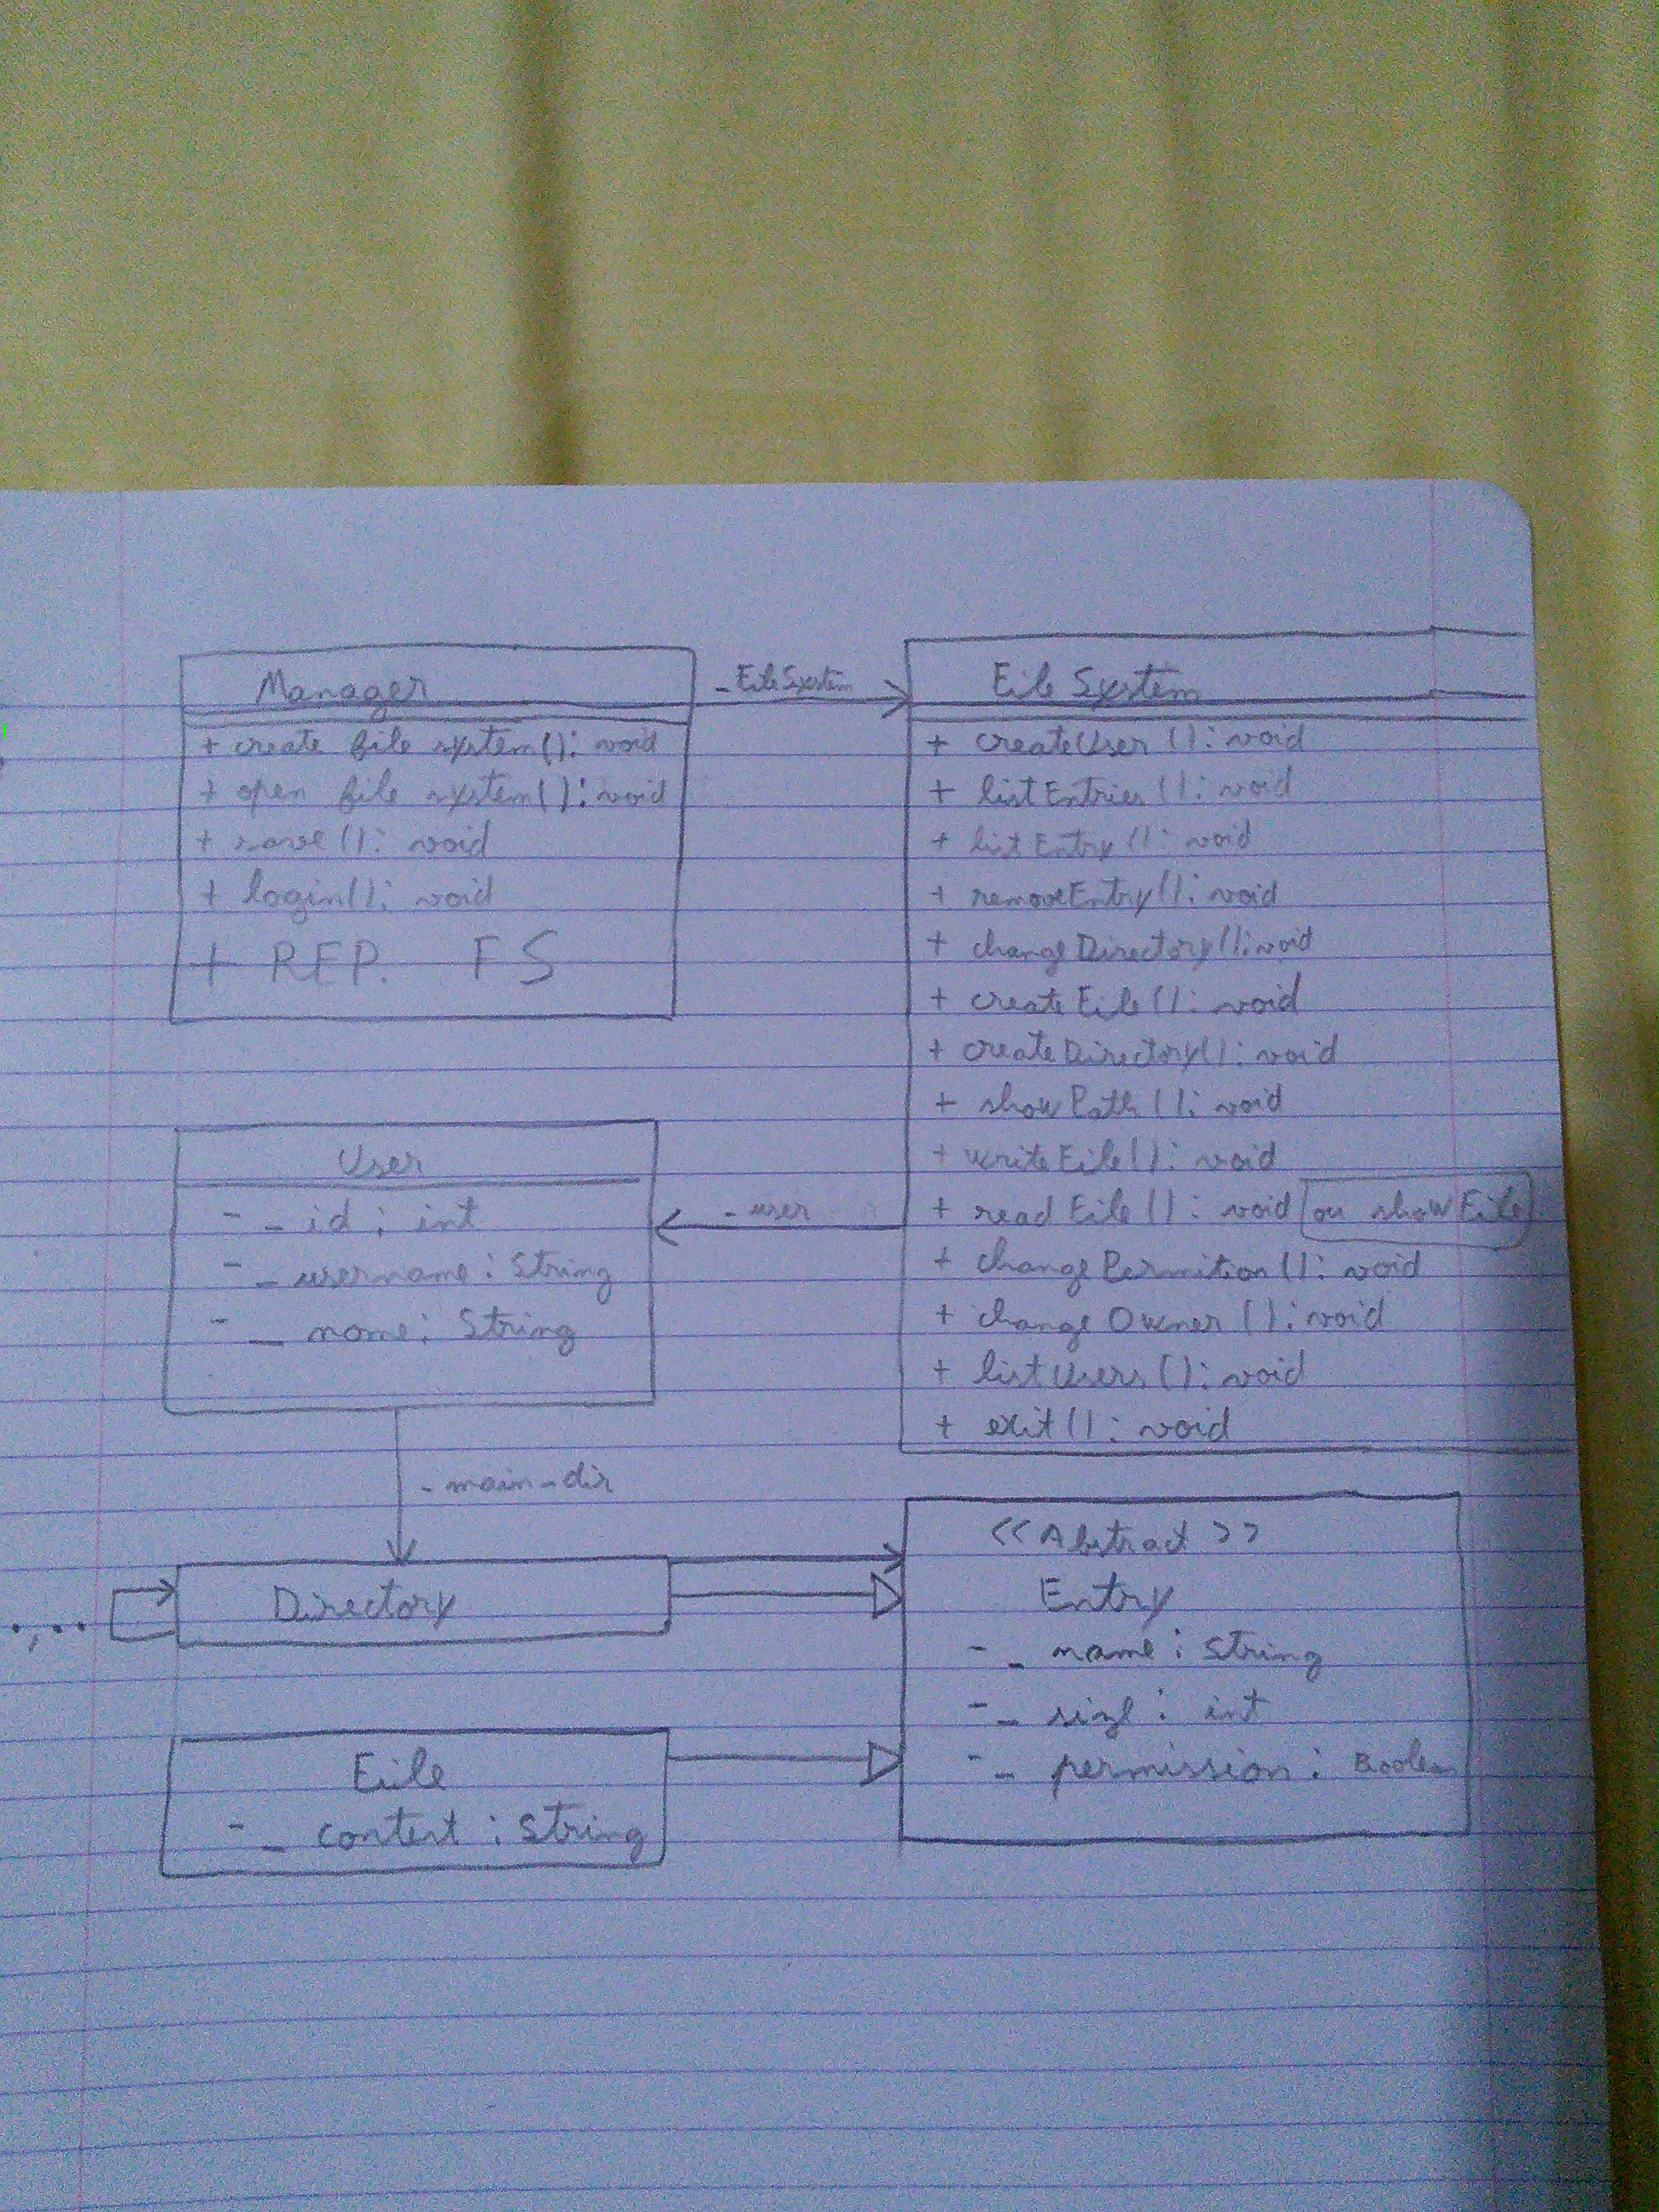 Manager
+ create file system(): void
+ open file system(): void
+ save(): void
+ login(): void
+ REP. FS
_FileSystem
File System
+ createUser(): void
+ listEntries(): void
+ listEntry(): void
+ removeEntry(): void
+ changeDirectory(): void
+ createFile(): void
+ createDirectory(): void
+ showPath(): void
+ writeFile(): void
+ readFile(): void (ou showFile)
+ changePermition(): void
+ changeOwner(): void
+ listUsers(): void
+ exit(): void
_user
User
- _id : int
- _username : String
- _nome : String
_main_dir
Directory
., ..
<<Abstract>>
Entry
- _ name : String
- _ size : int
- _ permission : Boolean
File
- _ content : String